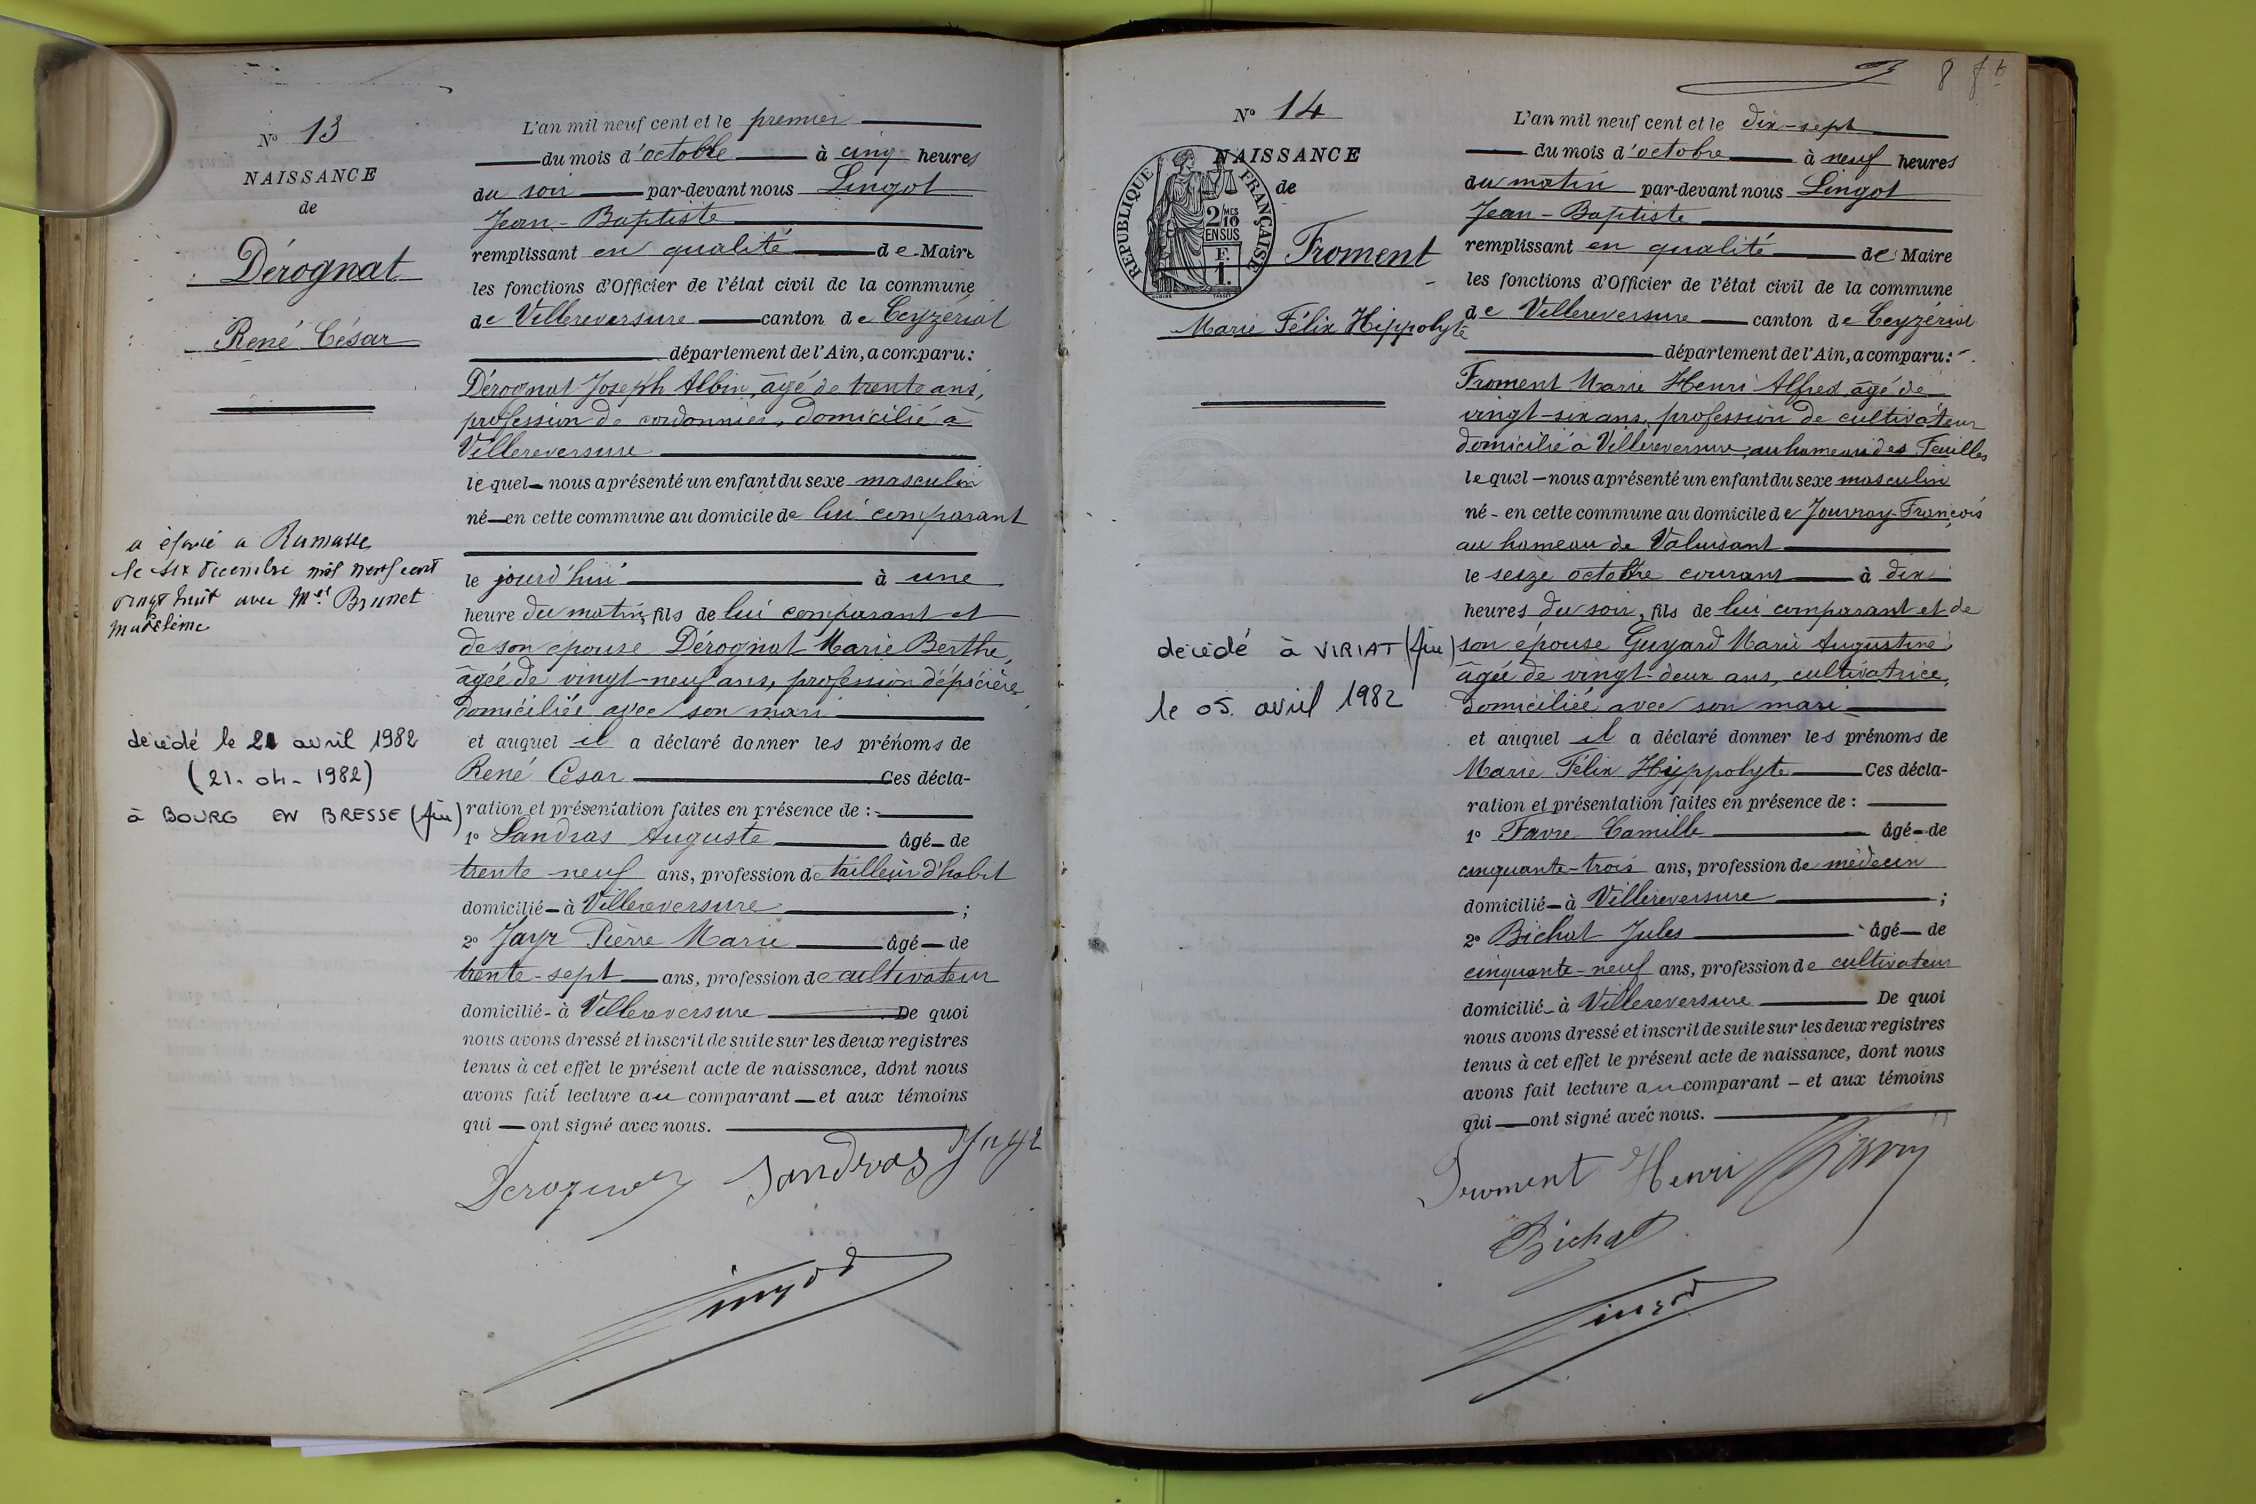 N° 13
NAISSANCE
de
Dérognat
René César
a épousé a Ramasse
le six decembre mil neuf cent
vingt huit avec Mlle Brunet
décédé le 21 avril 1982
(21-04-1982)
à BOURG EN BRESSE (Ain)
L'an mil neuf cent et le premier
du mois d'octobre à cinq heures
du soir par-devant nous Lingot
Jean-Baptiste
remplissant en qualité de Maire
les fonctions d'Officier de l'état civil de la commune
de Villereversure canton de Ceyzériat
département de l'Ain, a comparu:
Dérognat Joseph Albin, âgé de trente ans,
profession de cordonnier, domicilié à
Villereversure
lequel nous a présenté un enfant du sexe masculin
né en cette commune au domicile de lui comparant
le jourd'hui à une
heure du matin, fils de lui comparant et
de son épouse Dérognat Marie Berthe,
âgée de vingt-neuf ans, profession d'épicière,
domiciliée avec son mari
et auquel il a déclaré donner les prénoms de
René César Ces décla-
ration et présentation faites en présence de :
1° Sandras Auguste âgé de
trente neuf ans, profession de tailleur d'habit
domicilié à Villereversure ;
2° Jayr Pierre Marie âgé de
trente-sept ans, profession de cultivateur
domicilié à Villereversure De quoi
nous avons dressé et inscrit de suite sur les deux registres
tenus à cet effet le présent acte de naissance, dont nous
avons fait lecture au comparant et aux témoins
qui ont signé avec nous.
Derognat Sandras Jayr
Lingot
8 f
N° 14
NAISSANCE
de
REPUBLIQUE FRANÇAISE
2/10 MES
EN SUS
F.
1.
Froment
Marie Félix Hippolyte
décédé à VIRIAT (Ain)
le 05 avril 1982
L'an mil neuf cent et le dix-sept
du mois d'octobre à neuf heures
du matin par-devant nous Lingot
Jean-Baptiste
remplissant en qualité de Maire
les fonctions d'Officier de l'état civil de la commune
de Villereversure canton de Ceyzériat
département de l'Ain, a comparu:
Froment Marie Henri Alfred, âgé de
vingt-six ans, profession de cultivateur
domicilié à Villereversure, au hameau des Feuilles
lequel nous a présenté un enfant du sexe masculin
né en cette commune au domicile de Jouvray François
au hameau de Valuisant
le seize octobre courant à dix
heures du soir, fils de lui comparant et de
son épouse Guyard Marie Augustine
âgée de vingt-deux ans, cultivatrice,
domiciliée avec son mari
et auquel il a déclaré donner les prénoms de
Marie Félix Hippolyte Ces décla-
ration et présentation faites en présence de :
1° Favre Camille âgé de
cinquante-trois ans, profession de médecin
domicilié à Villereversure ;
2° Bichat Jules âgé de
cinquante-neuf ans, profession de cultivateur
domicilié à Villereversure De quoi
nous avons dressé et inscrit de suite sur les deux registres
tenus à cet effet le présent acte de naissance, dont nous
avons fait lecture au comparant et aux témoins
qui ont signé avec nous.
Froment Henri Favre
Bichat
Lingot